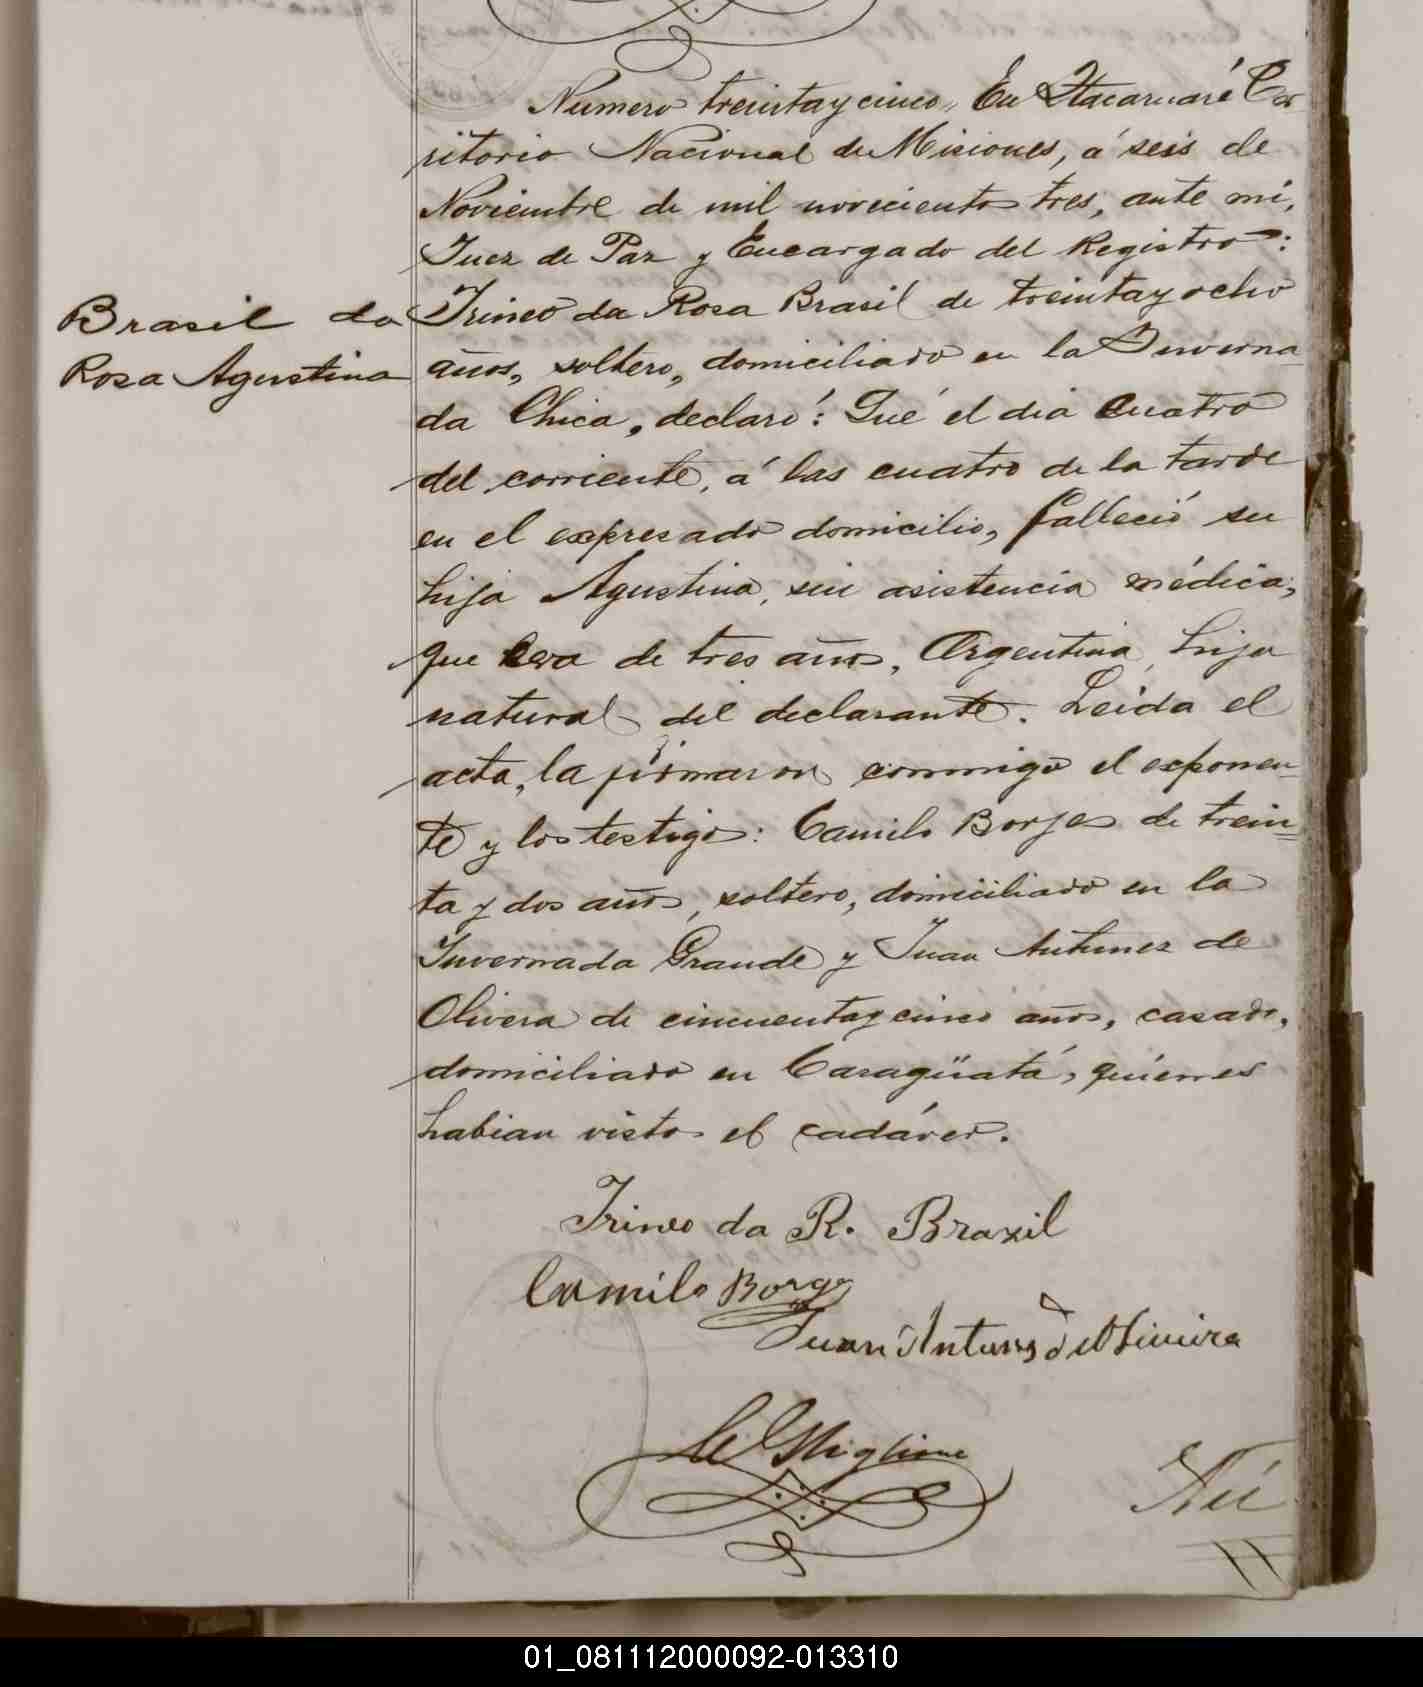 Numero treintaycinco, En Itacaruaré Ter-
ritorio Nacional de Misiones, á seis de
Noviembre de mil novecientos tres, ante mi,
Juez de Paz y Encargado del Registro:
Brasil da
Rosa Agustina
Irineo da Rosa Brasil de treintayocho
años, soltero, domiciliado en la Inverna-
da Chica, declaró: Qué el dia cuatro
del corriente, á las cuatro de la tarde
en el expresado domicilio, falleció su
hija Agustina, sin asistencia médica,
que era de tres años, Argentina, hija
natural del declarante. Leida el
acta, la firmaron conmigo el exponen-
te y los testigos: Camilo Borges de trein-
ta y dos años, soltero, domiciliado en la
Invernada Grande y Juan Antunez de
Olivera de cincuentaycinco años, casado,
domiciliado en Caragüatá, quiénes
habian visto el cadáver.
Irineo da R. Brazil
Camilo Borge
Juan Antunes de Oliveira
Miglione
Nú
01_081112000092-013310